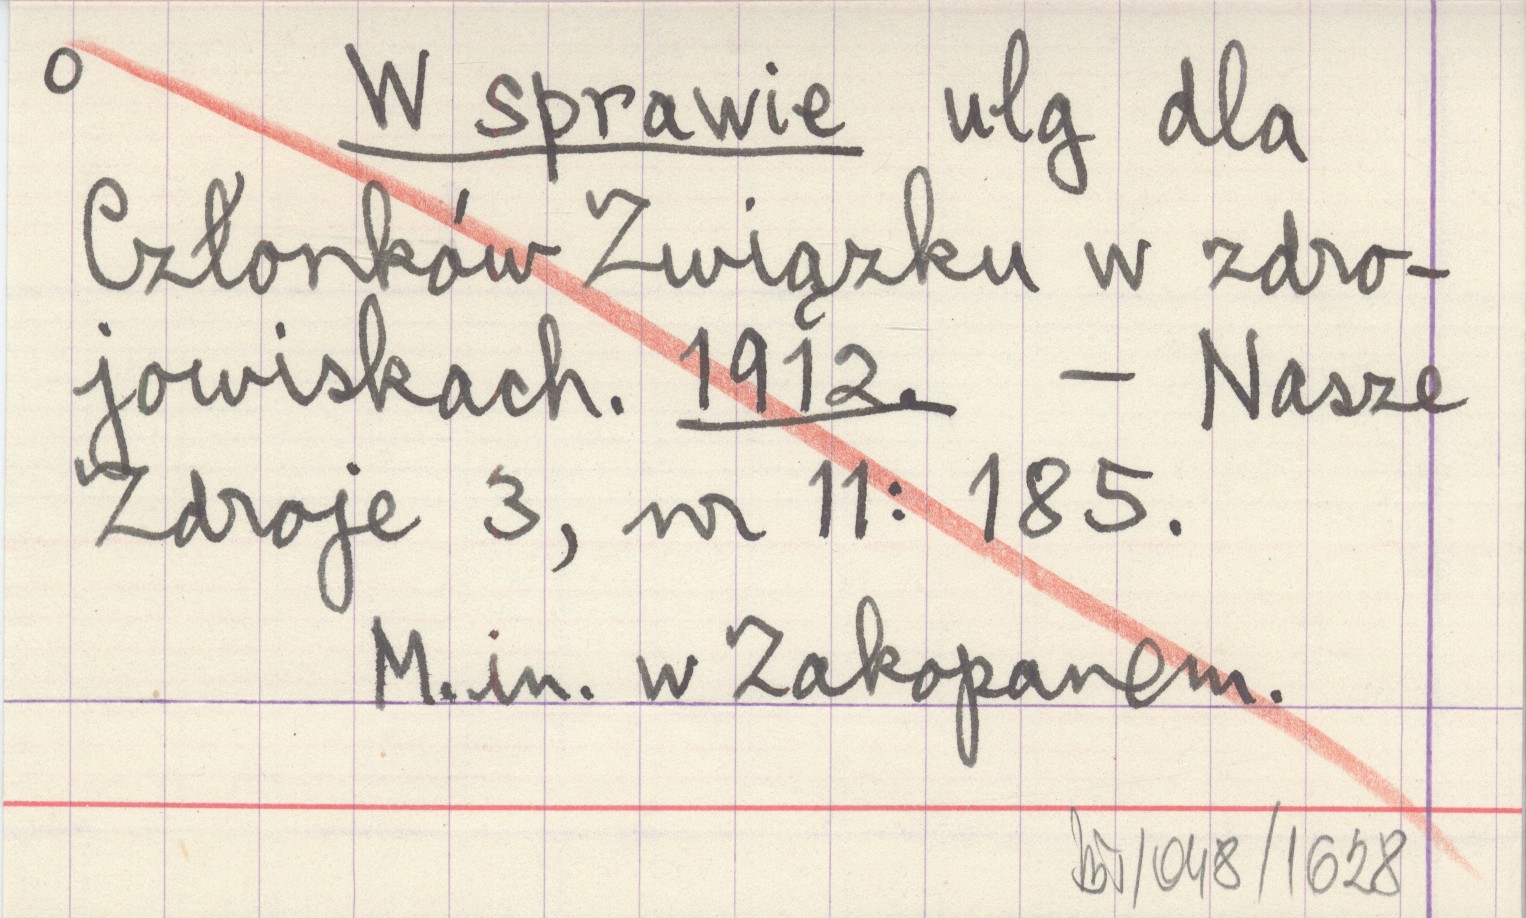 o W sprawie ulg dla
Członków Związku w zdro-
jowiskach. 1912. – Nasze
Zdroje 3, nr 11: 185.
M.in. w Zakopanem.
/048/1628